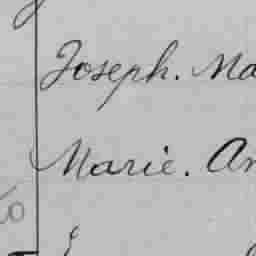 Joseph. Ma
Marie. An